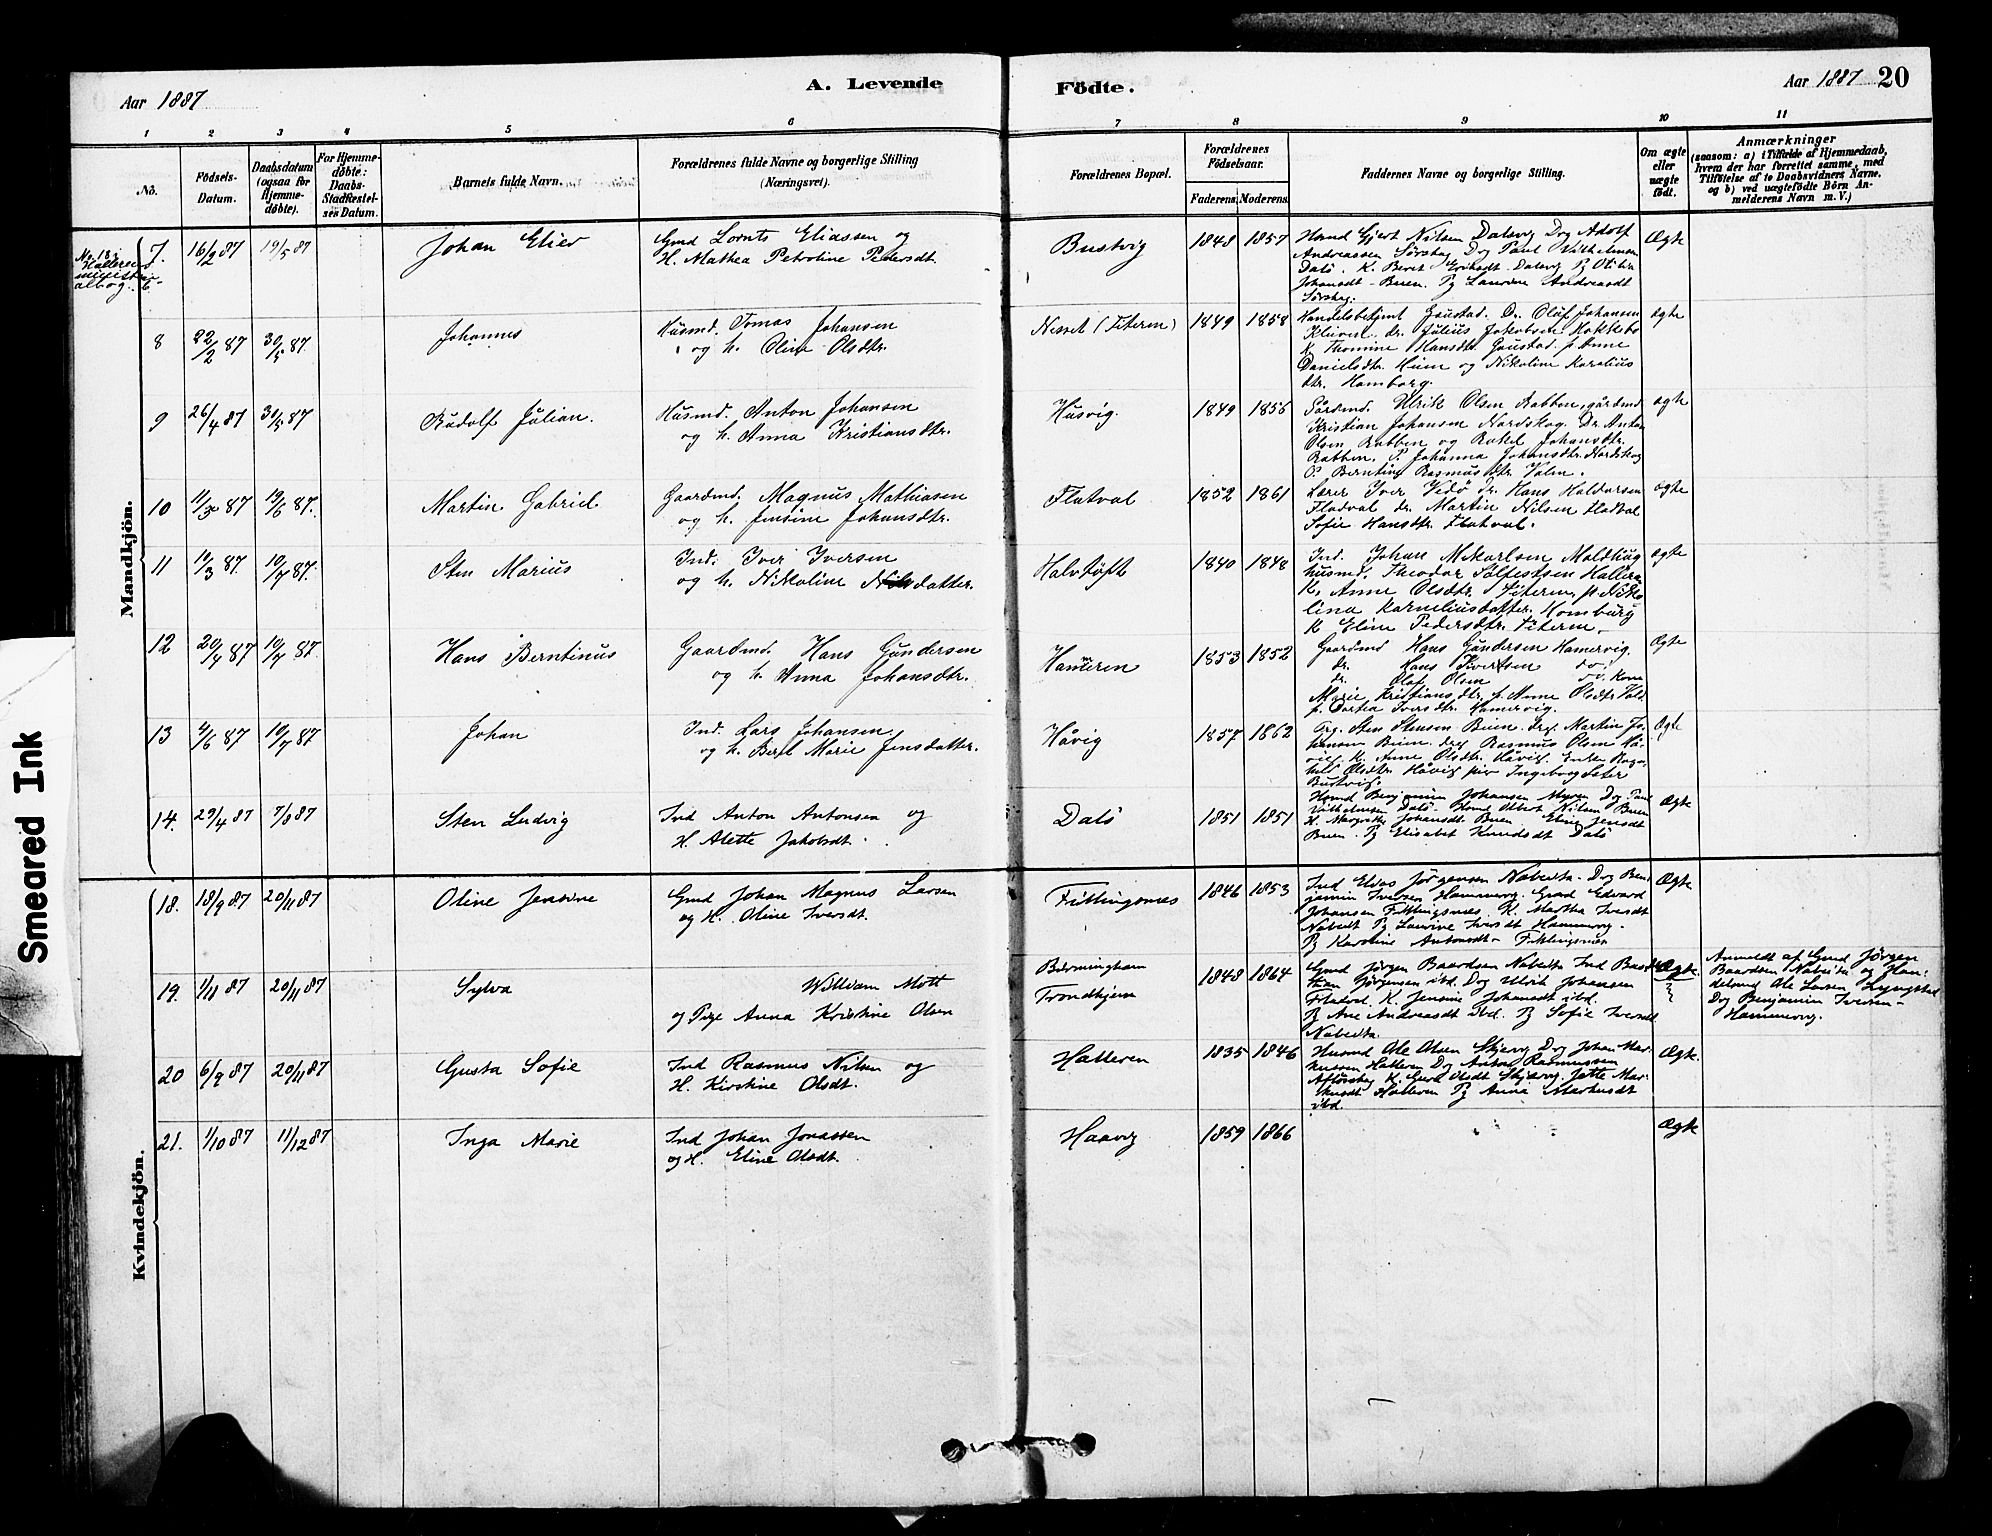 Aar 1887
A. Levende
Födte.
Aar 1887 20
1 2 3 4 5 6 7 8 9 10 11
No.
Födsels-Datum.
Daabsdatum (ogsaa for Hjemmedøbte).
For Hjemmedøbte: Daabs-Stadfestelses Datum.
Barnets fulde Navn.
Forældrenes fulde Navne og borgerlige Stilling (Næringsvei).
Forældrenes Bopæl.
Forældrenes Födselsaar.
Faderens. Moderens.
Faddernes Navne og borgerlige Stilling.
Om ægte eller uægte født.
Anmærkninger
(saasom: a) i Tilfælde af Hjemmedaab, hvem der har forrettet samme, med Tilföielse af to Daabsvidners Navne, og b) ved uægtefödte Börn Anmelderens Navn m. V.)
Mandkjön.
7. 16/2 87 19/5 87 Johan Elier
Gmd Lornts Eliassen og
H. Mathea Petroline Pedersdt.
Bustvig 1848 1857
Husmd Gjert Nilsen Dalsvg Drg Adolf
Andreassen Sørskag Drg Paul Vilhelmsen
Dalö. K. Beret Dalsvg Pg Otilia
Johansdt Buen. Pg Laurine Andreasdt
Sørskag.
Ægte
8 22/2 87 30/5 87 Johannes
Husmd. Tomas Johansen
og h. Oline Olsdtr.
Nesset (Titeren) 1849 1858
Handelsbetjent Gaustad. Dr. Oluf Johansen
Kliven. dr. Julius Jakobsen
K. Thomine Hansdtr. Gaustad. p Anne
Danielsdtr. Huse og Nikoline Karolius
dtr. Homborg.
ægte
9 26/4 87 30/5 87 Rudolf Julian.
Husmd. Anton Johansen
og h. Anna Kristiansdtr.
Husvig. 1849 1856
Gårdmd. Ulrik Olsen Rabben, gårdmd
Kristian Johansen Nordskog. Dr. Anton
Olsen Rabben og Rakel Johansdtr.
Rabben. P. Johanna Johansdtr. Nordskog
P. Berntine Rasmusdtr. Valen.
ægte
10 11/3 87 19/6 87. Martin Gabriel
Gaardmd. Magnus Mathiasen
og h. Jensine Johansdtr.
Flatval 1852 1861
Lærer Iver Vedö dr. Hans Haldorsen
Fladval dr. Martin Nilsen Fladval
Sofie Hansdtr. Flatval.
ægte
11 11/3 87. 10/7 87. Sten Marius
Ind. Iver Iversen
og h. Nikoline Nilsdatter.
Halvtöft 1840 1848
Ind. Johan Mikarlsen Moldhug
husmd. Theodor Sölfestsen Halleren
K. Anne Olsdtr. Siteren, p Niko-
lina Korneliusdatter. Homburg
K Eline Pedersdtr. Titeren.
ægte
12 20/4 87 10/7 87. Hans Berntinus
Gaardmd. Hans Gundersen
og h. Anna Johansdtr.
Hameren 1853 1852
Gaardmd Hans Gundersen Hamervig.
dr. Hans Ivertsen do.
dr. Olaf Olsen do. Kone
Marie Kristiansdtr. p. Anne Olsdtr.
p. Dortea Iversdtr. Hamervig.
Ægte
13 4/6 87 10/7 87 Johan
Ind. Lars Johansen
og h. Beret Marie Jensdatter.
Håvig 1857 1862
Sten Stensen Buen. drg. Martin Jo-
hansen Buen. drg Rasmus Olsen Hå-
vig. K. Anne Olsdtr. Håvig. Enke Ragn-
hild Olsdtr. Håvig pige Ingeborg Seter
Bustvig.
Ægte
14. 29/4 87 7/8 87 Sten Ludvig
Ind Anton Antonsen og
H. Alette Jakobsdt.
Dalö 1851 1851
Husmd Benjamin Johansen Myren Drg Paul
Vilhelmsen Dalö. Husmd Albert Nilsen Buen
K. Margrethe Johansdt Buen Eline Jensdt
Buen. Pg Elisabet Knudsdt Dalö
Ægte
Kvindekjön.
18. 18/9 87 20/11 87 Oline Jensine
Gmd Johan Magnus Larsen
og H. Oline Iversdt.
Fillingsnes 1846 1853
Ind Elias Jörgensen Nabeita. Drg Ben-
jamin Iversen Hammervg. Gmd Edvard
Johansen Fillingsnes. K. Martha Iversdt
Nabeita Pg Laurine Iversdt Hammervg.
Pg Karoline Antonsdt Fillingsnes
Ægte
19. 1/11 87 20/11 87 Sylva
William Mott
og Pige Anna Kristine Olsen
Birmingham
Trondhjem
1848 1864
Gmd Jörgen Baardsen Nabeita Ind Bast-
ian Jörgensen ibd. Drg Ulrik Johansen
Fladval. K. Jensine Johansdt ibd.
Pg Ane Andreasdt ibd. Pg Sofie Iversdt
Nabeita.
Ægte.
Anmeldt af Gmd Jörgen
Baardsen Nabeita og Han-
delsmd Ole Larsen Lyngstad
Drg Benjamin Iversen
Hammervg.
20 6/9 87 20/11 87 Gusta Sofie
Ind Rasmus Nilsen og
H. Kirstine Olsdt.
Halleren 1835 1846
Husmd Ole Olsen Skjervg Drg Johan Mar-
kussen Halleren Drg Anton Rasmussen
K. Guru Olsdt Skjervg Jette Mar-
kusdt Halleren Pg Anna Markusdt
ibd.
Ægte.
21. 1/10 87 11/12 87 Inga Marie
Ind Johan Jonassen
og H. Eline Olsdt.
Haavig 1859 1866
Ægte
Smeared Ink